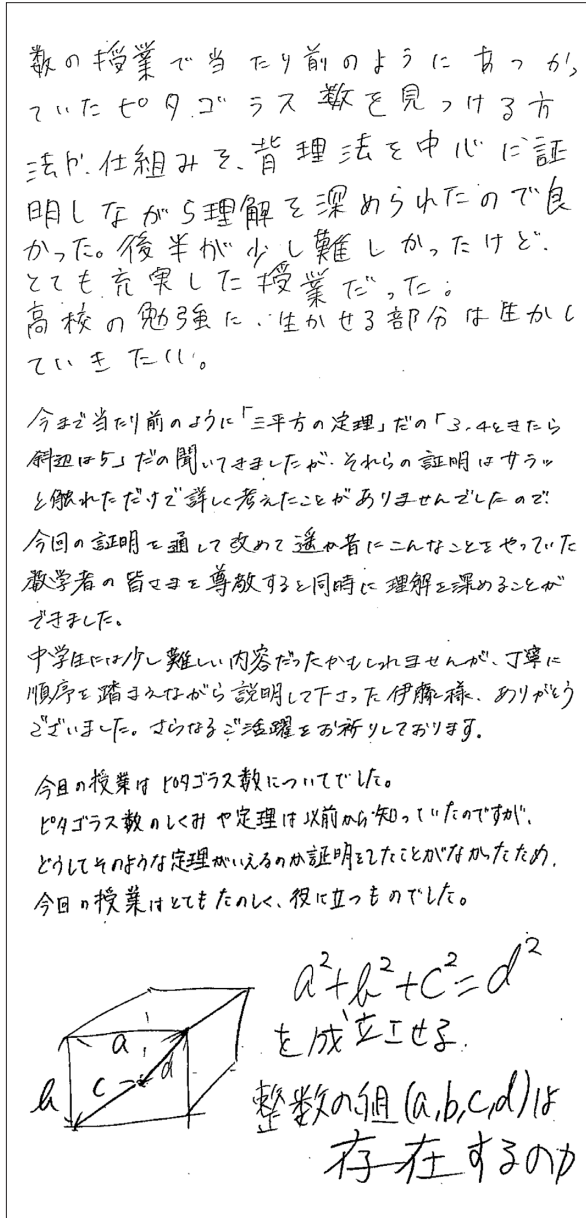 数の授業で当たり前のようにあつかっ
ていたピタゴラス数を見つける方
法や、仕組みを、背理法を中心に証
明しながら理解を深められたので良
かった。後半が少し難しかったけど、
とても充実した授業だった。
高校の勉強に、生かせる部分は生かし
ていきたい。
今まで当たり前のように「三平方の定理」だの「3,4ときたら
斜辺は5」だの聞いてきましたが、それらの証明はサラッ
と触れただけで詳しく考えたことがありませんでしたので、
今回の証明を通して改めて遥か昔にこんなことをやっていた
数学者の皆さまを尊敬すると同時に理解を深めることが
できました。
中学生には少し難しい内容だったかもしれませんが、丁寧に
順序を踏まえながら説明して下さった伊藤様、ありがとう
ございました。さらなるご活躍をお祈りしております。
今日の授業はピタゴラス数についてでした。
ピタゴラス数のしくみや定理は以前から知っていたのですが、
どうしてそのような定理がいえるのか証明をしたことがなかったため、
今回の授業はとてもたのしく、役に立つものでした。
a²+b²+c²=d²
を成立させる
整数の組(a,b,c,d)は
存在するのか
a
b
c
d